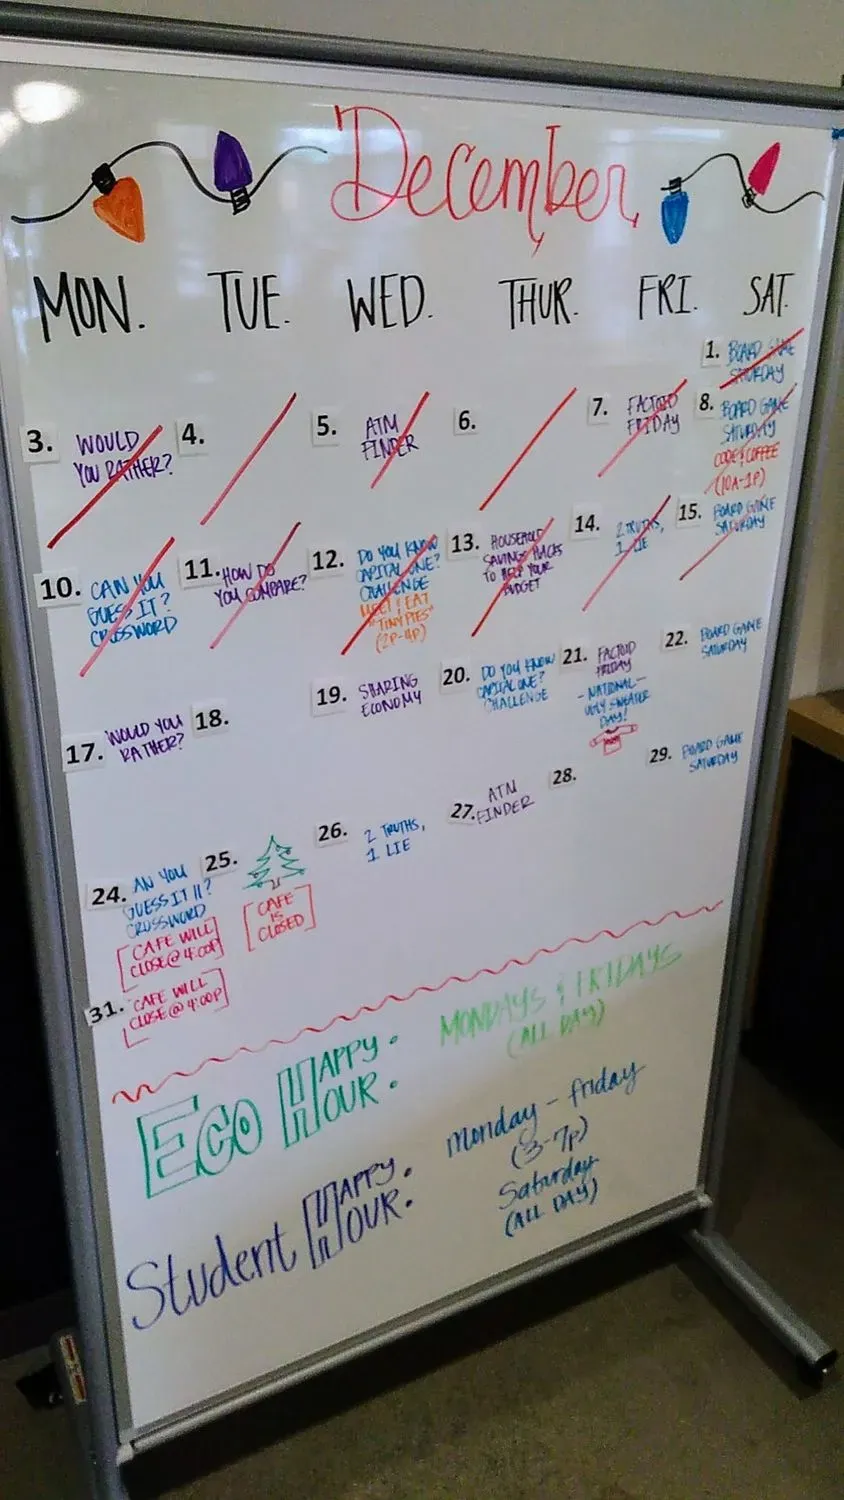 December
MON. TUE. WED. THUR. FRI. SAT.
1. BOARD GAME
SATURDAY
3. WOULD
YOU RATHER?
4.
5. ATM
FINDER
6.
7. FACTOID
FRIDAY
8. BOARD GAME
SATURDAY
CODE & COFFEE
(10A-1P)
10. CAN YOU
GUESS IT?
CROSSWORD
11. HOW DO
YOU COMPARE?
12. DO YOU KNOW
CAPITAL ONE?
CHALLENGE
MEET & EAT
"TINY PIES"
(2P-4P)
13. HOUSEHOLD
SAVING HACKS
TO HELP YOUR
BUDGET
14. 2 TRUTHS,
1 LIE
15. BOARD GAME
SATURDAY
17. WOULD YOU
RATHER?
18.
19. SHARING
ECONOMY
20. DO YOU KNOW
CAPITAL ONE?
CHALLENGE
21. FACTOID
FRIDAY
- NATIONAL -
UGLY SWEATER
DAY!
22. BOARD GAME
SATURDAY
24. AN YOU
GUESS IT II?
CROSSWORD
[CAFE WILL
CLOSE @ 4:00P]
25.
[CAFE
IS
CLOSED]
26. 2 TRUTHS,
1 LIE
27. ATM
FINDER
28.
29. BOARD GAME
SATURDAY
31. [CAFE WILL
CLOSE @ 4:00P]
ECO HAPPY HOUR: MONDAYS & FRIDAYS
(ALL DAY)
Student HAPPY HOUR: Monday - friday
(3-7p)
Saturday
(ALL DAY)